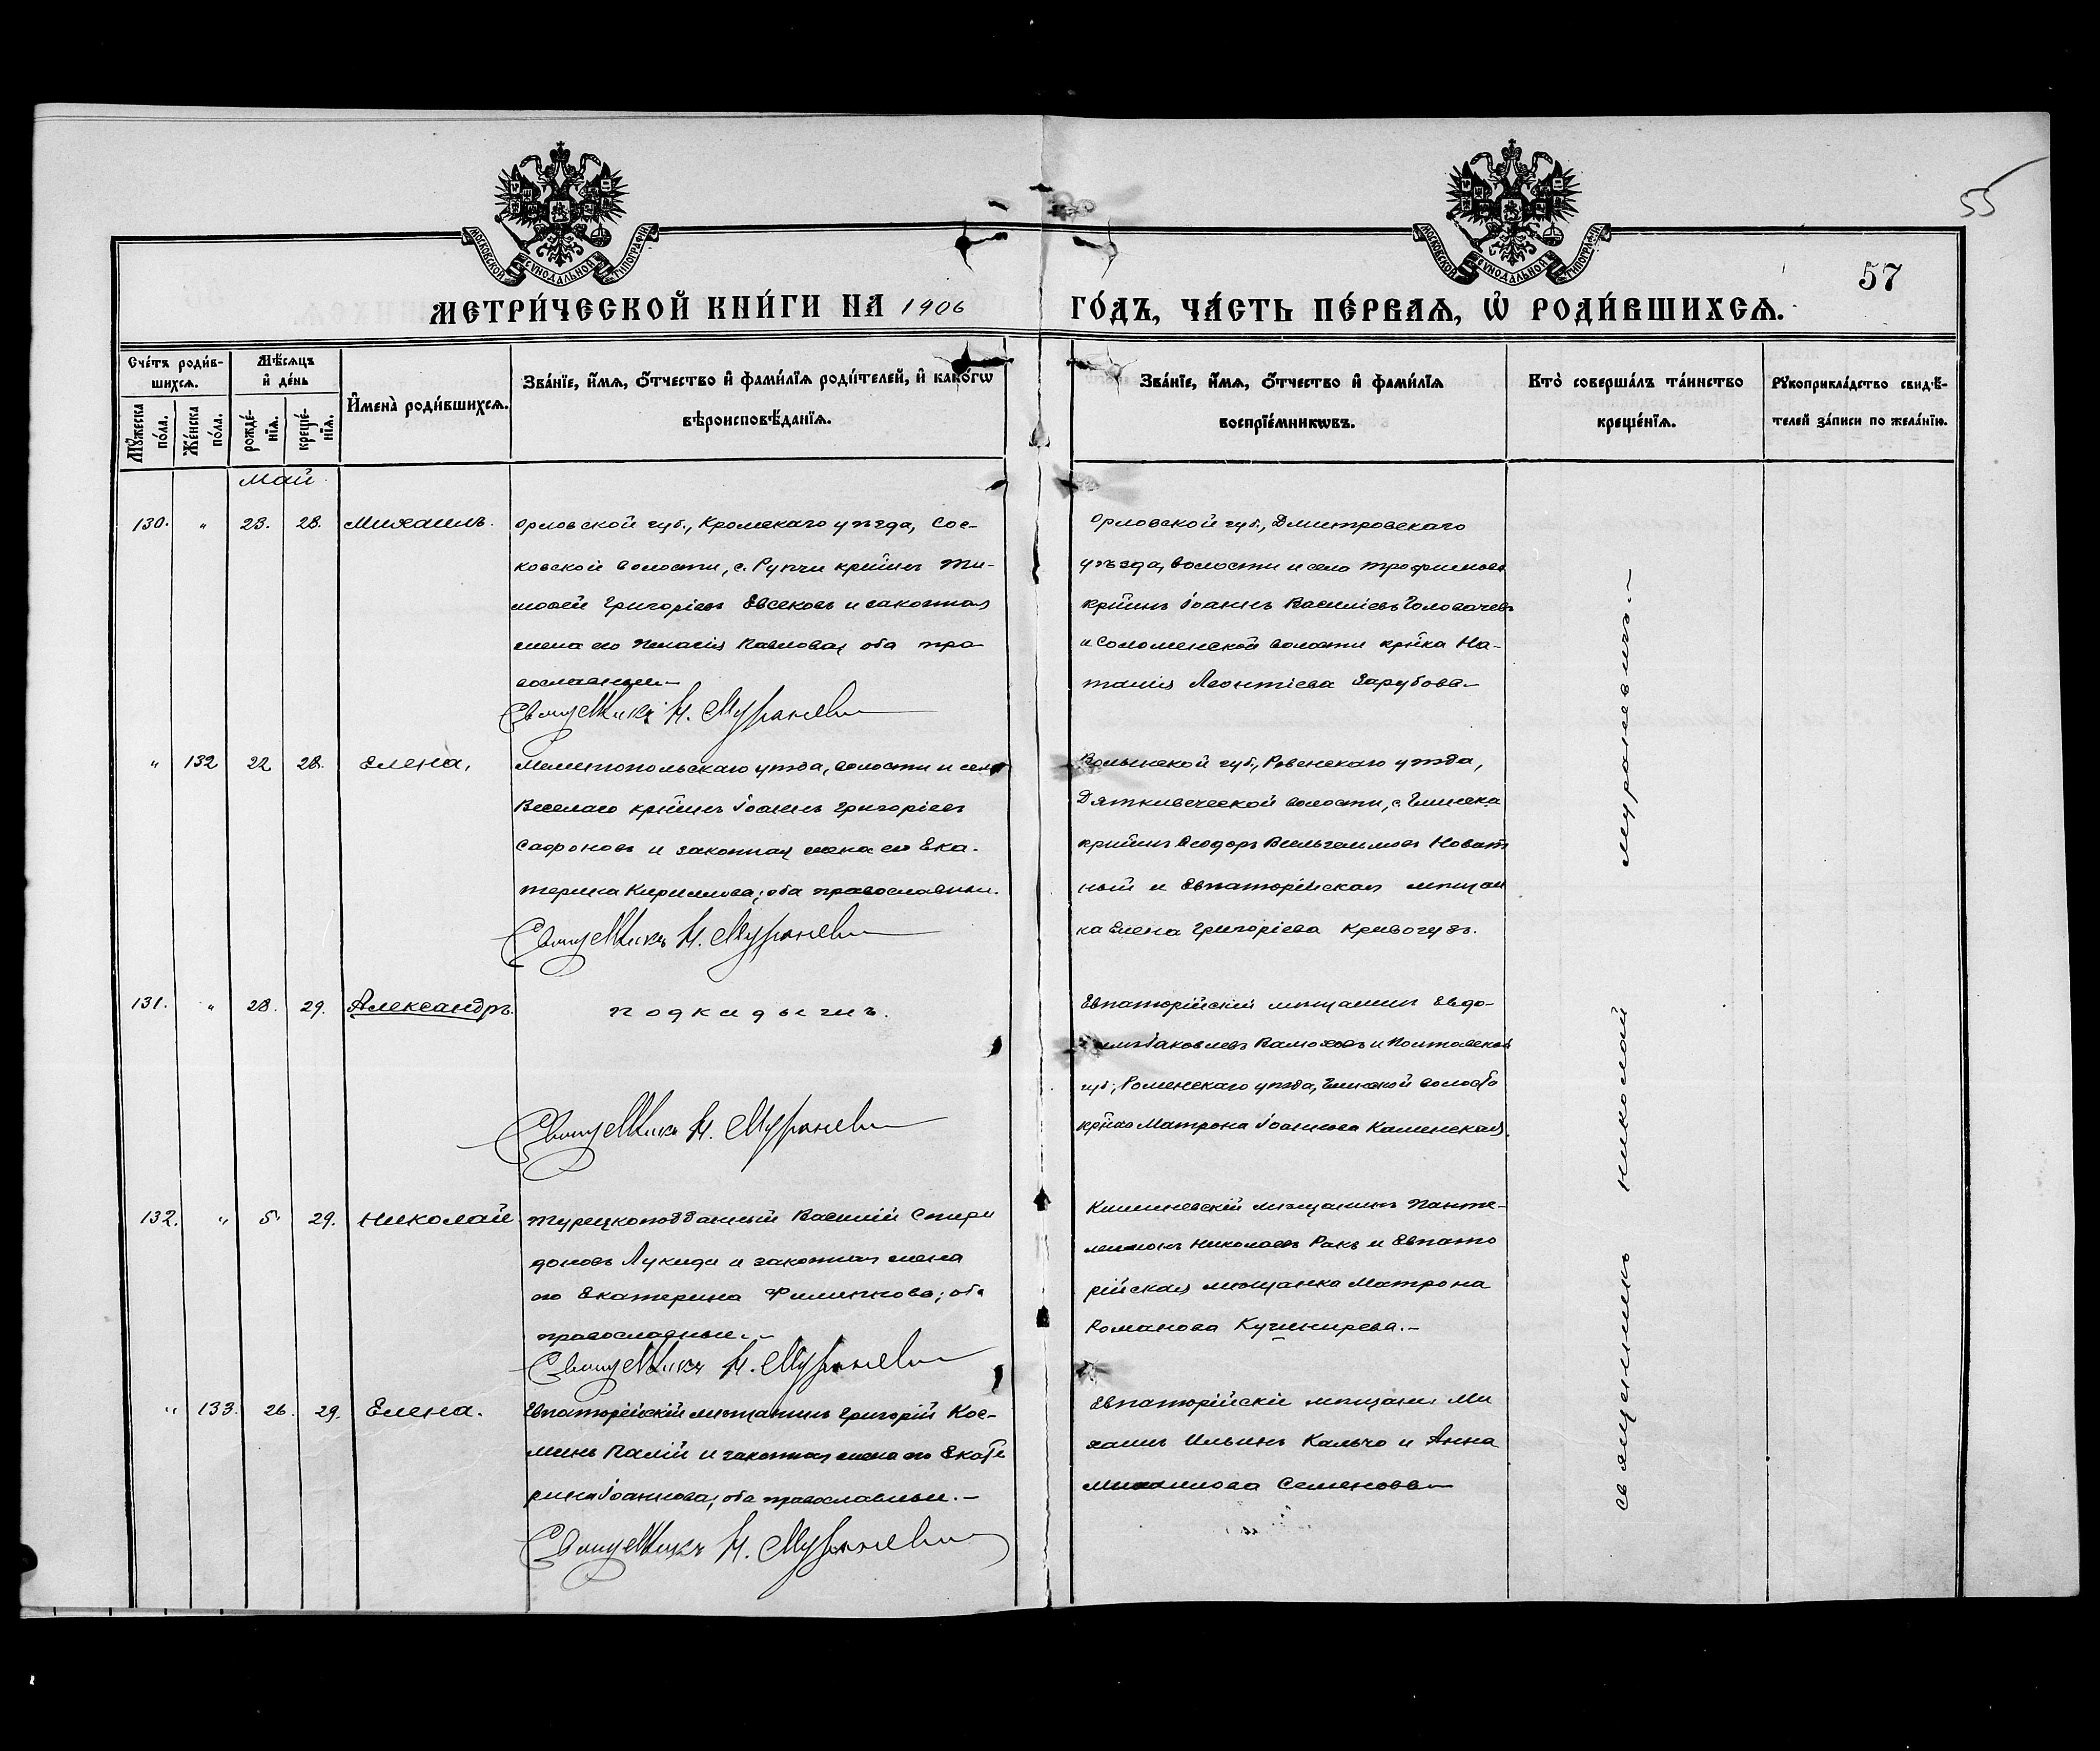 55
57
МОСКОВСКОЙ СѴНОДАЛЬНОЙ ТИПОГРАФІИ
МОСКОВСКОЙ СѴНОДАЛЬНОЙ ТИПОГРАФІИ
МЕТРИ́ЧЕСКОЙ КНИ́ГИ НА 1906 ГО́ДЪ, ЧА́СТЬ ПЕ́РВАѦ, Ѡ҆ РОДИ́ВШИХСѦ.
Сче́тъ роди́в-
шихсѧ.
Мꙋ́жеска по́ла.
Же́нска по́ла.
Мѣ́сѧцъ
и҆ де́нь
рожде́-
нїѧ.
креще́-
нїѧ.
И҆мена̀ роди́вшихсѧ.
Зва́нїе, и҆́мѧ, ѻ҆́тчество и҆ фами́лїѧ роди́телей, и҆ како́гѡ
вѣроисповѣ́данїѧ.
Зва́нїе, и҆́мѧ, ѻ҆́тчество и҆ фами́лїѧ
воспрїе́мникѡвъ.
Кто̀ соверша́лъ та́инство
креще́нїѧ.
Рꙋкоприкла́дство свидѣ́-
телей за́писи по жела́нїю.
Май
130. " 23. 28. Михаилъ.
Орловской губ., Кромскаго уѣзда, Сос-
ковской волости, с. Рупчи кр͠йинъ Ти-
мофей Григоріевъ Евсековъ и законная
жена его Пелагія Павлова, оба пра-
вославные.–
Священникъ Н. Мураневич
Орловской губ., Дмитровскаго
уѣзда, волости и села
кр͠йинъ Іоаннъ Василіевъ Головачевъ
и Соломенской волости кр͠йка На-
талія Леонтіева Зарубова.–
" 132 22 28. Елена,
Мелитопольскаго уѣзда, волости и села
Веселаго кр͠йинъ Іоаннъ Григоріевъ
Сафоновъ и законная жена его Ека-
терина Кириллова; оба православные.
Священникъ Н. Мураневич
Волынской губ., Ровенскаго уѣзда,
волости, с. Глинска
кр͠йинъ Ѳеодоръ
ный и Евпаторійская мѣщан
ка Елена Григоріева Кривогубъ.
131. " 28. 29. Александръ.
подкидышъ.
Священникъ Н. Мураневич
Евпаторійскій мѣщанинъ Евдо-
Іаковлевъ и Полтавской
губ., Роменскаго уѣзда, волости
кр͠йка Матрона Іоаннова Каменская.
132. " 5. 29. Николай
Турецкоподданный Василій Спири
доновъ Лукиди и законная жена
его Екатерина Филиппова; оба
православные.–
Священникъ Н. Мураневич
Кишиневскій мѣщанинъ Панте-
леимонъ Николаевъ Ракъ и Евпато
рійская мѣщанка Матрона
Романова Кушнирева.–
" 133. 26. 29. Елена.
Евпаторійскій мѣщанинъ Григорій Кос-
минъ Палій и законная жена его Екате
рина Іоаннова; оба православные.–
Священникъ Н. Мураневич
Евпаторійскіе мѣщане Ми
хаилъ Ильинъ Кальчо и Анна
Михаилова Семенова–
священникъ Николай Мураневичъ.–